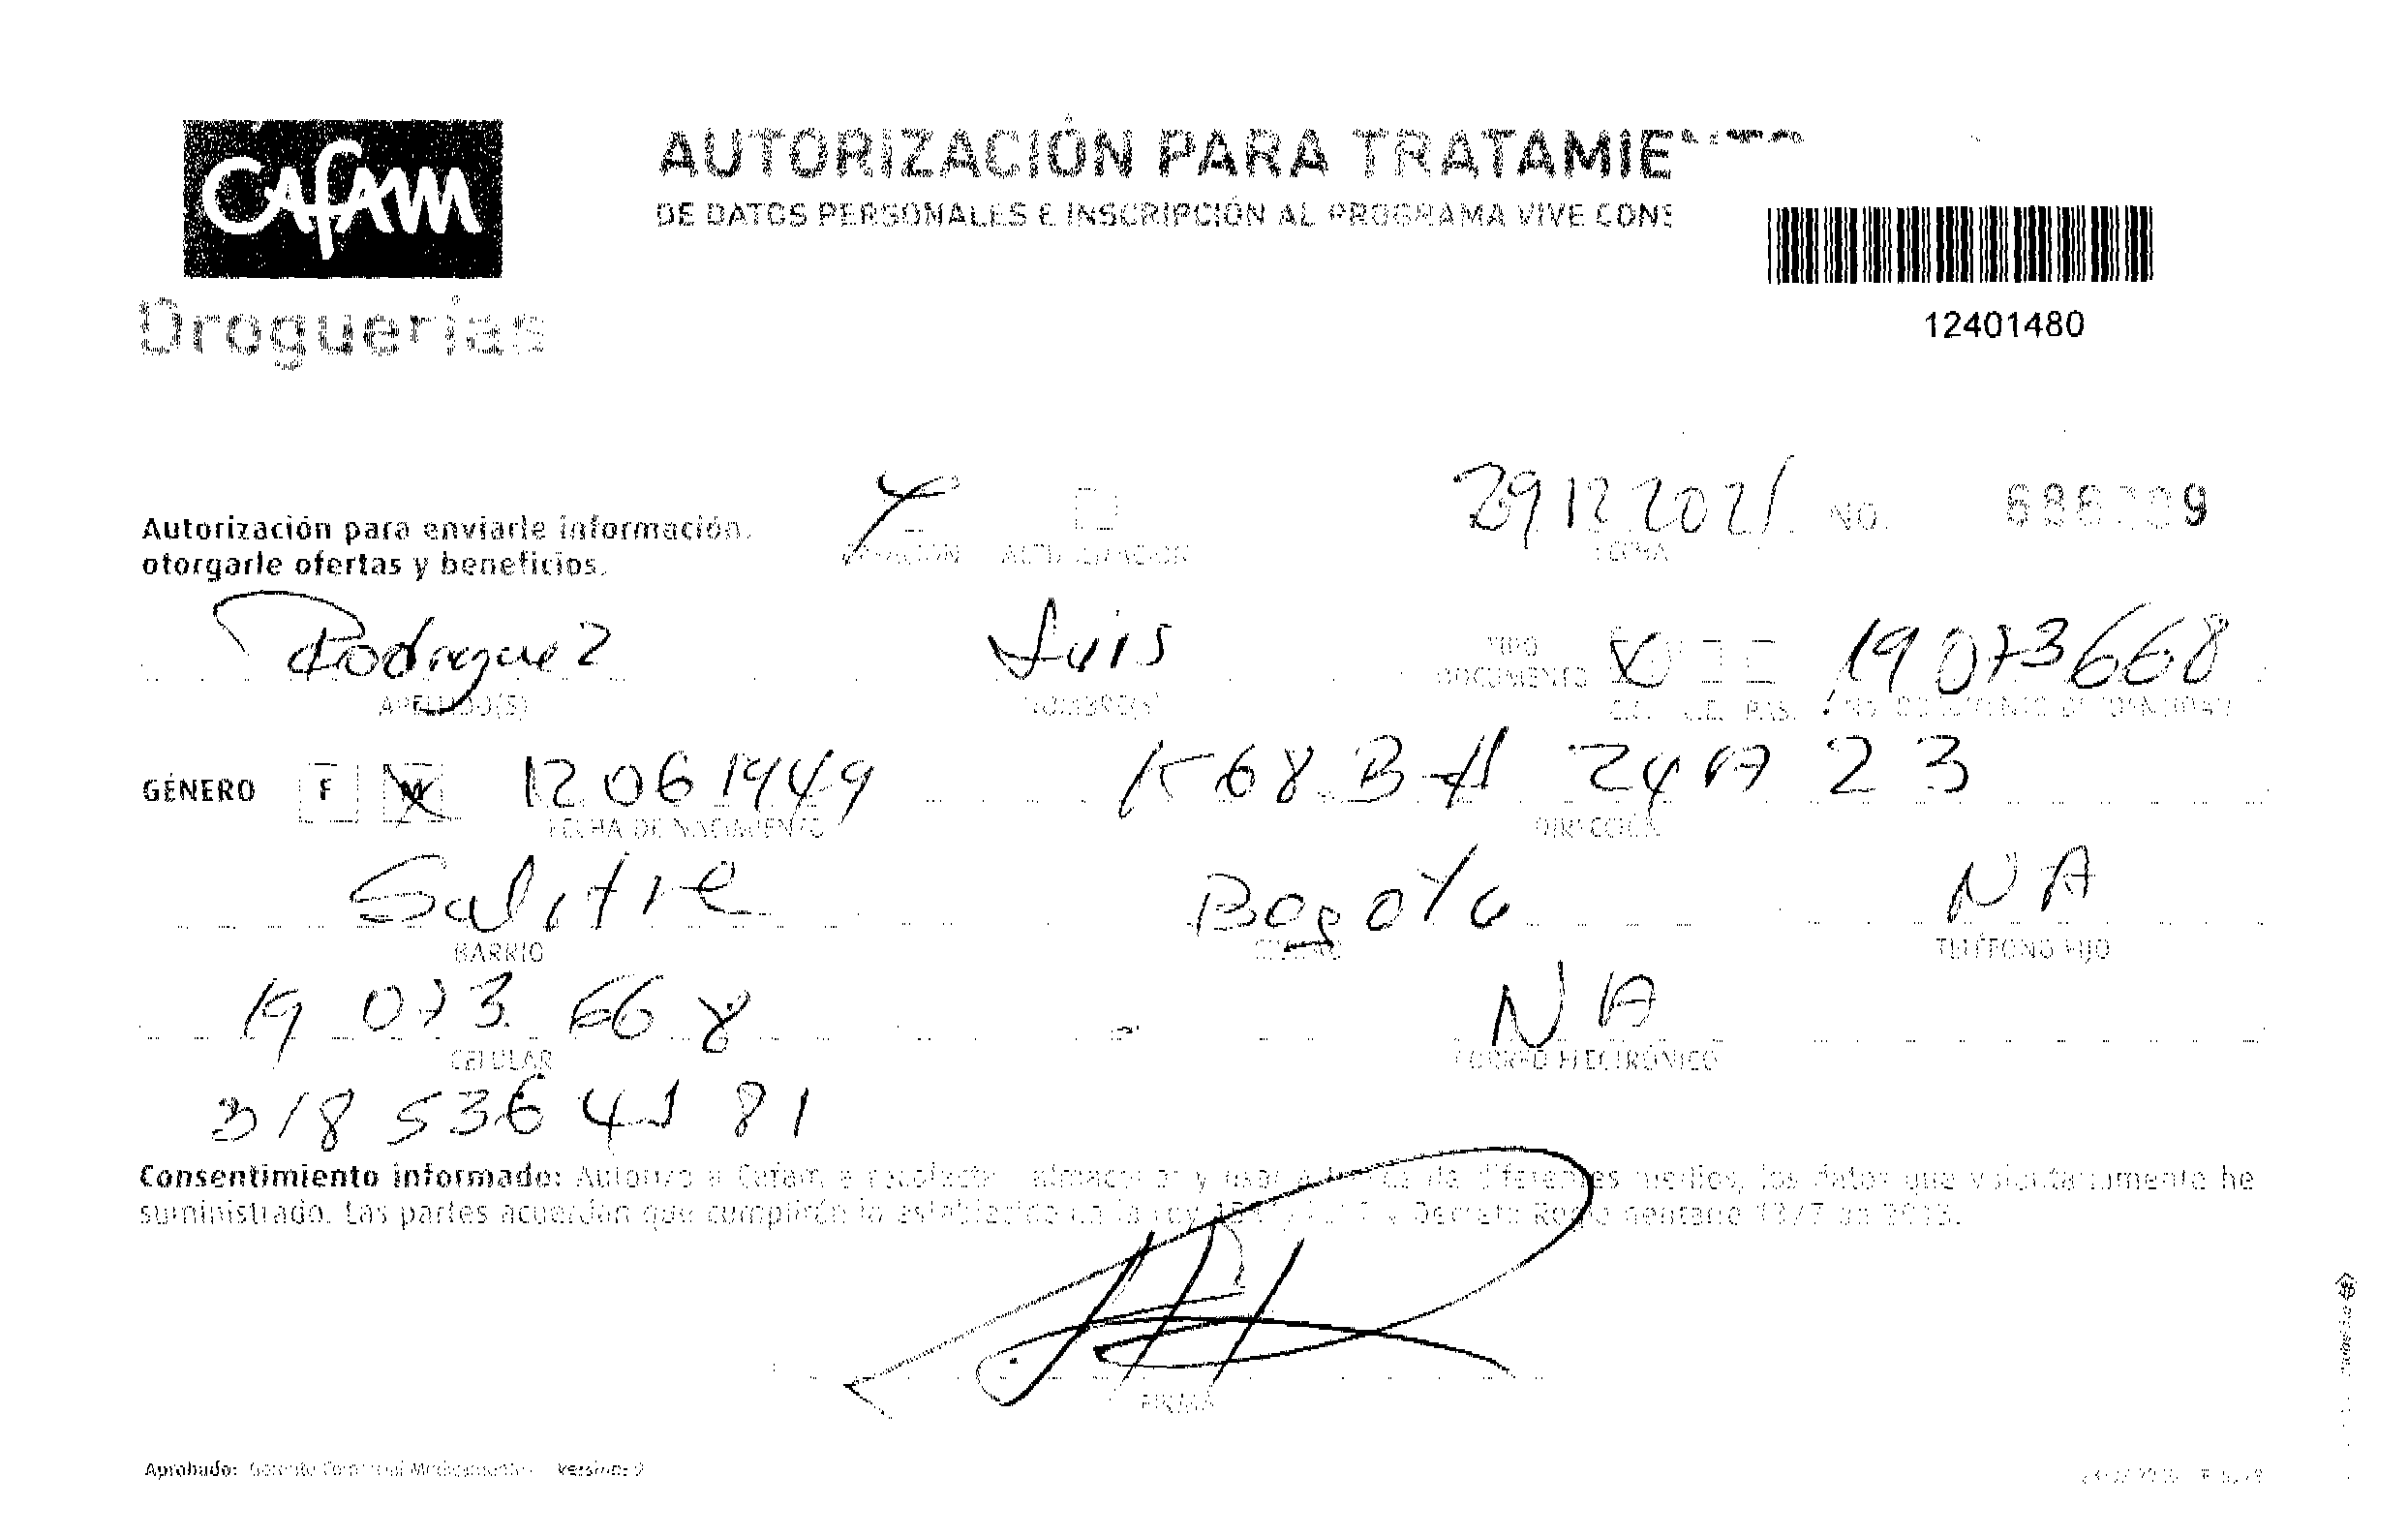 Cafam
Droguerías
AUTORIZACIÓN PARA TRATAMIENTO
DE DATOS PERSONALES E INSCRIPCIÓN AL PROGRAMA VIVE CONS
12401480
Autorización para enviarle información,
otorgarle ofertas y beneficios.
CREACIÓN ACTUALIZACIÓN
29 12 2021 NO.
FECHA
Rodriguez Luis TIPO DOCUMENTO X 19073668
APELLIDO(S) NOMBRE(S) C.C. C.E. PAS. NO. DOCUMENTO DE IDENTIDAD
GÉNERO F M 12061949 K 68 B # 24 A 23
FECHA DE NACIMIENTO DIRECCIÓN
Salitre Bogota NA
BARRIO CIUDAD TELÉFONO FIJO
19 073 668 NA
CELULAR CORREO ELECTRÓNICO
318 536 41 81
Consentimiento informado: Autorizo a Cafam a recolectar, almacenar y usar a través de diferentes medios, los datos que voluntariamente he
suministrado. Las partes acuerdan que cumplirán lo establecido en la Ley Decreto Reglamentario 1377 de 2013.
FIRMA
Aprobado: Gerente Corporal Medicamentos Versión: 2